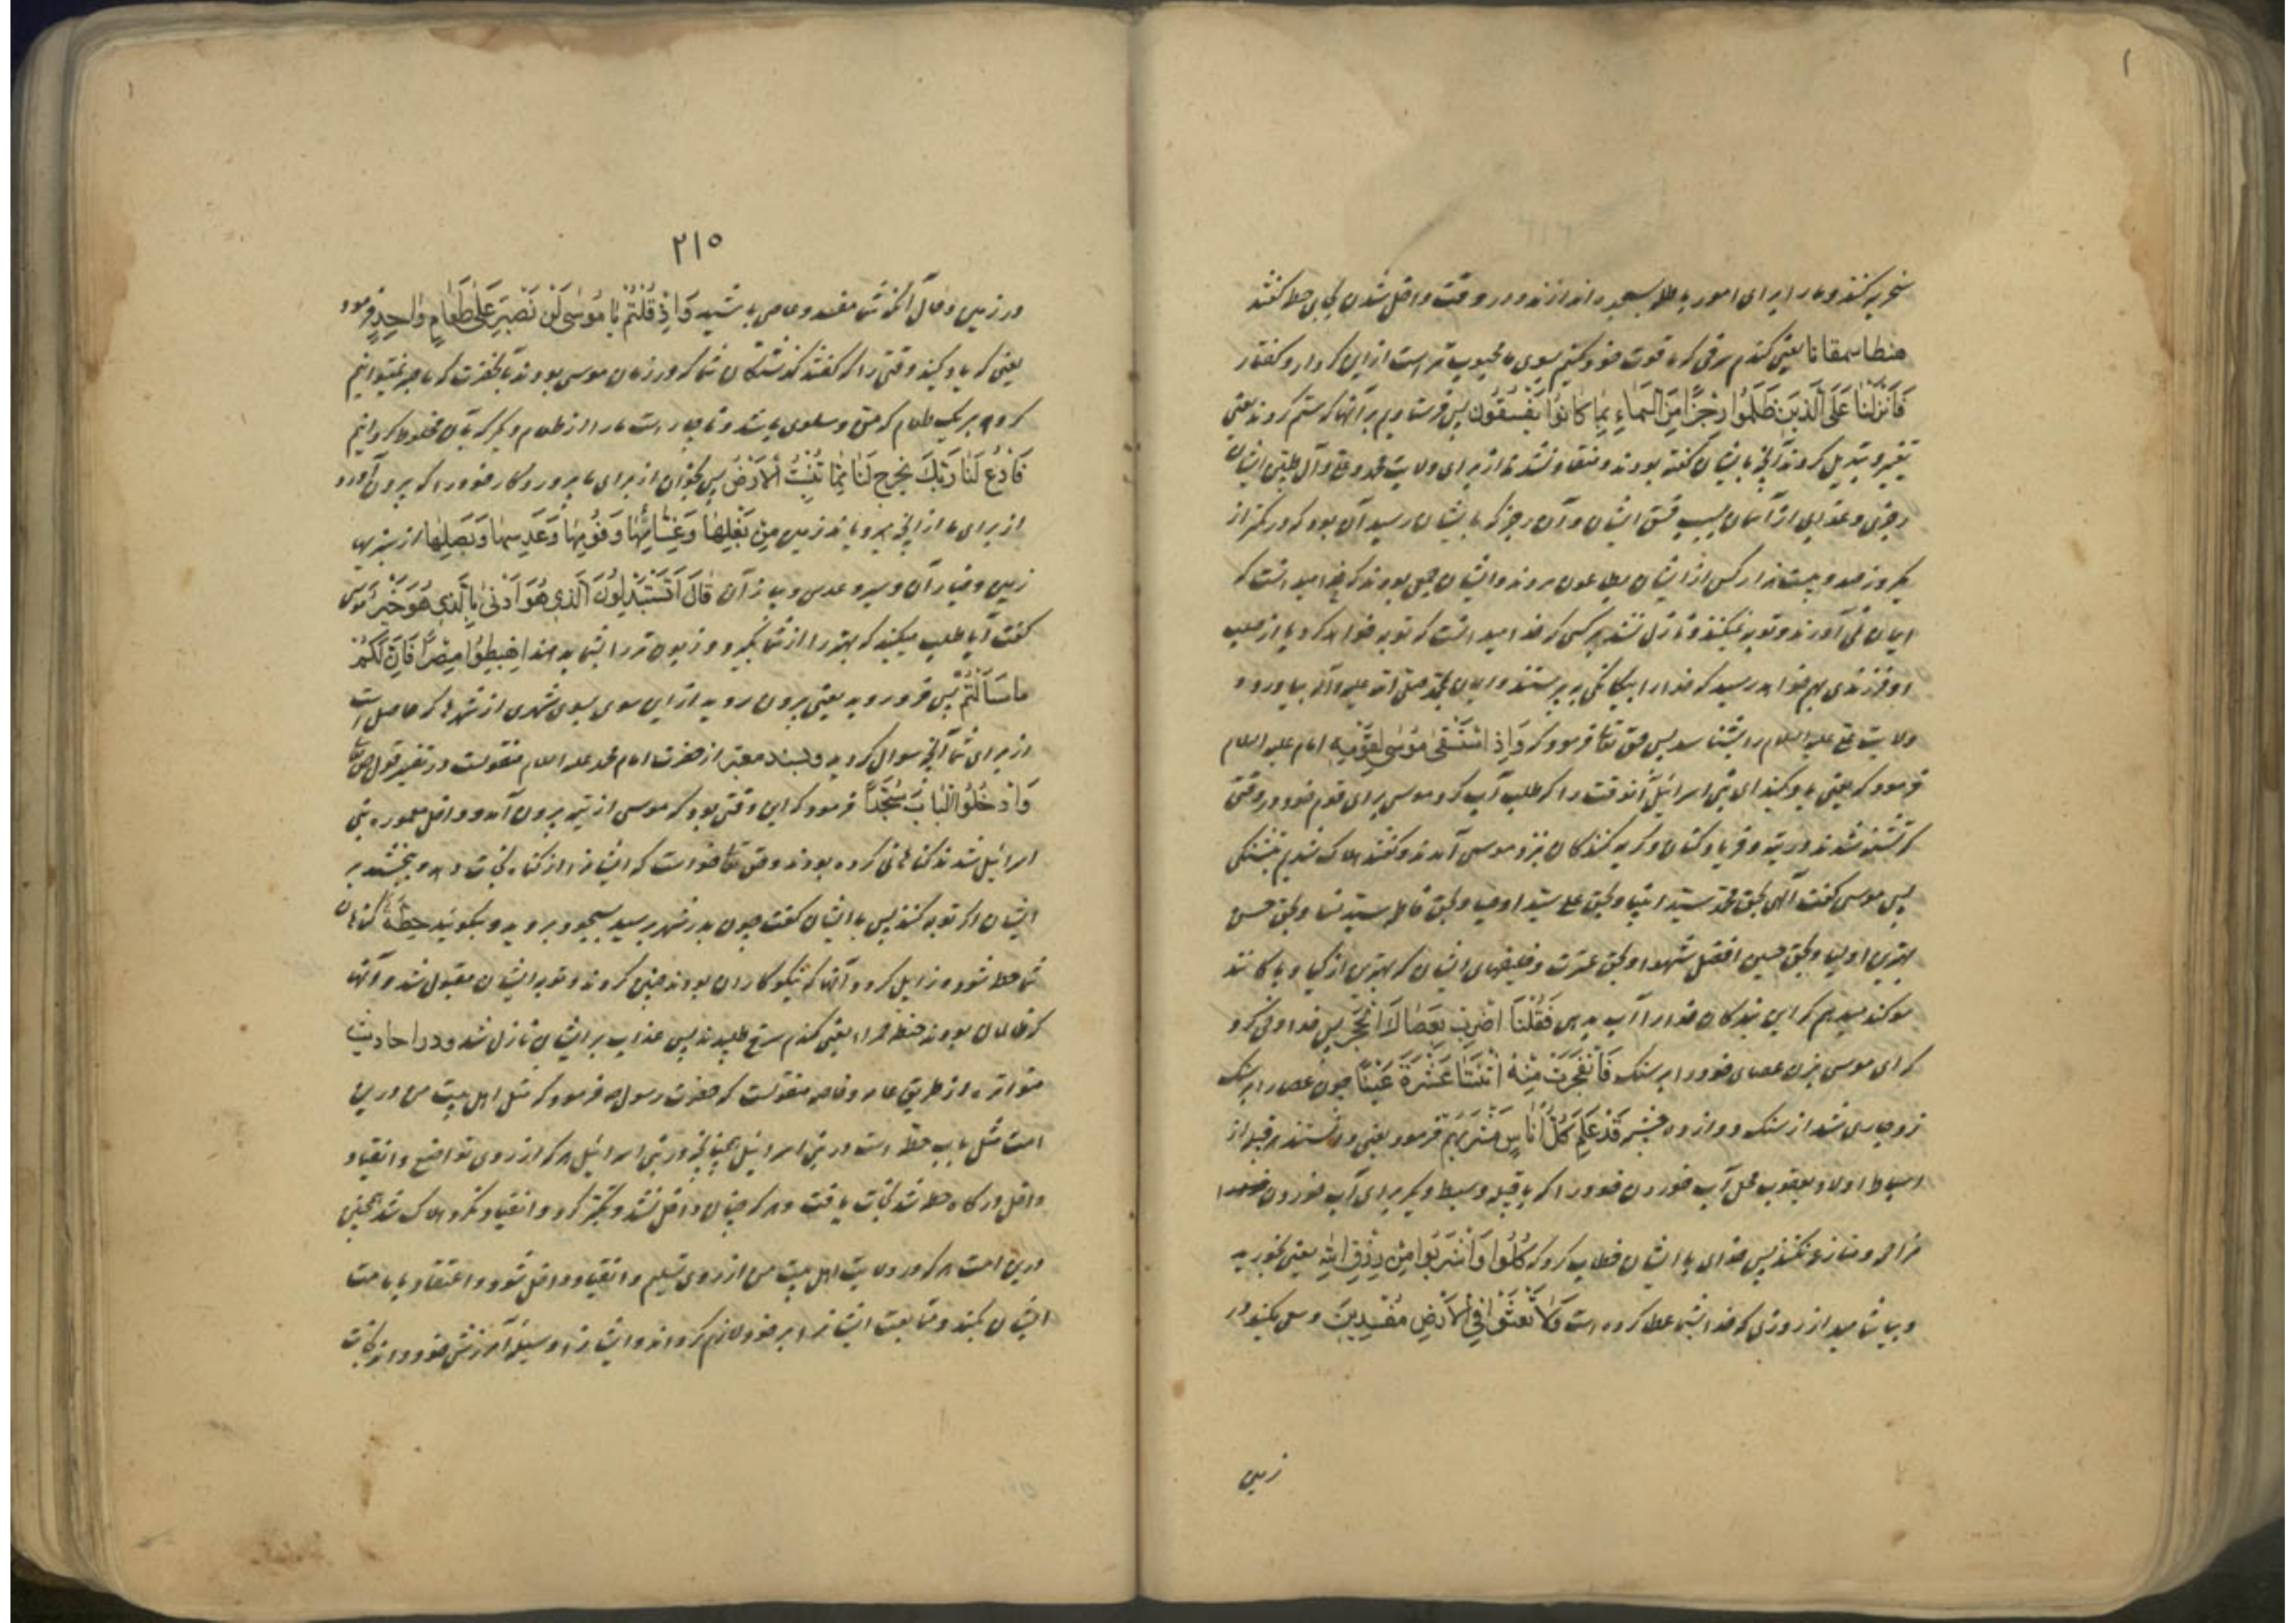 سخریه کنند و ما را برای امور باطله بسجده اندازند و در وقت داخل شدن بجای حطه گفتند
هنطا سمقانا یعنی گندم سرخی که ما قوت خود کنیم بسوی ما محبوب تر است از این کردار و گفتار
فَاَنْزَلْنَا عَلَی الَّذینَ ظَلَمُوا رِجْزًا مِنَ السَّمَاءِ بِمَا کَانُوا یَفْسُقُونَ پس فرستادیم بر آنها که ستم کردند یعنی
تغییر و تبدیل کردند آنچه بایشان گفته بودند و منقاد نشدند از برای ولایت محمد و علی و آل طیبین ایشان
رجزی و عذابی از آسمان بسبب فسق ایشان و آن رجز که بایشان رسید آن بود که در کمتر از
یکروز صد و بیست هزار کس از ایشان بطاعون مردند و ایشان جمعی بودند که خدا میدانست که
ایمان نمی آورند و توبه نمیکنند و نازل نشد بر کسی که خدا میدانست که توبه خواهد کرد یا از صلب
او فرزندی بهم خواهد رسید که خدا را بیگانگی بپرستد و ایمان بمحمد صلی الله علیه و آله بیاورد و
ولایت علی علیه السلام را بشناسد پس حق تعا فرمود که وَاِذِ اسْتَسْقیٰ مُوسیٰ لِقَوْمِهِ امام علیه السلام
فرمود که یعنی یاد کنید ای بنی اسرائیل آنوقت را که طلب آب کرد موسی برای قوم خود در وقتی
که تشنه شدند در تیه و فریاد کنان و گریه کنندگان بنزد موسی آمدند و گفتند هلاک شدیم بتشنگی
پس موسی گفت الهی بحق محمد سید انبیا و بحق علی سید اوصیا و بحق فاطمه سیده نسا و بحق حسن
بهترین اولیا و بحق حسین افضل شهدا و بحق عترت و خلیفهای ایشان که بهترین ازکیا و پاکانند
سوکند میدهم که این بندکان خود را آب بدهی فَقُلْنَا اضْرِبْ بِعَصَاکَ الْحَجَرَ پس خدا وحی کرد
که ای موسی بزن عصای خود را بر سنگ فَانْفَجَرَتْ مِنْهُ اثْنَتَا عَشْرَةَ عَیْنًا چون عصا را بر سنگ
زد جاری شد از سنگ دوازده چشمه قَدْ عَلِمَ کُلُّ اُنَاسٍ مَشْرَبَهُمْ فرمود یعنی دانستند هر قبیله از
اسباط اولاد یعقوب محل آب خوردن خود را که با قبیله و سبط دیگر برای آب خوردن
مزاحمه و منازعه نکنند پس خدای با ایشان خطاب کرد که کُلُوا وَاشْرَبُوا مِنْ رِزْقِ اللهِ یعنی بخورید
و بیاشامید از روزی که خدا بشما عطا کرده است وَلَا تَعْثَوْا فِی الْاَرْضِ مُفْسِدینَ و سعی مکنید در
زمین
۲۱۵
در زمین و حال آنکه شما مفسد و عاصی باشید وَاِذْ قُلْتُمْ یَا مُوسیٰ لَنْ نَصْبِرَ عَلیٰ طَعَامٍ وَاحِدٍ فرمود
یعنی که یاد کنید وقتی را که گفتند گذشتگان شما که در زمان موسی بودند بآنحضرت که ما صبر نمیتوانیم
کرد بر یک طعام که من و سلوی باشد و ناچار است ما را از طعام دیگر که بآن مخلوط گردانیم
فَادْعُ لَنَا رَبَّکَ یُخْرِجْ لَنَا مِمَّا تُنْبِتُ الْاَرْضُ پس بخوان از برای ما پروردگار خود را که بیرون آورد
از برای ما از آنچه میرویاند زمین مِنْ بَقْلِهَا وَقِثَّائِهَا وَفُومِهَا وَعَدَسِهَا وَبَصَلِهَا از سبزیهای
زمین و خیار آن و سیر و عدس و پیاز آن قَالَ اَتَسْتَبْدِلُونَ الَّذی هُوَ اَدْنیٰ بِالَّذی هُوَ خَیْرٌ موسی
گفت آیا طلب میکنید که بهتر را از شما بگیرد و زبون تر را بشما بدهند اِهْبِطُوا مِصْرًا فَاِنَّ لَکُمْ
مَا سَاَلْتُمْ پس فرود روید یعنی بیرون روید از این سوی بسوی شهری از شهرها که حاصل است
از برای شما آنچه سوال کردید و بسند معتبر از حضرت امام محمد علیه السلام منقولست در تفسیر قول حق تعا
وَادْخُلُوا الْبَابَ سُجَّدًا فرمود که این وقتی بود که موسی از تیه بیرون آمد و داخل معموره بنی
اسرائیل شدند گناهانی کرده بودند و حق تعا خواست که ایشانرا از گناه نجات دهد و ببخشد بر
ایشان اگر توبه کنند پس با ایشان گفت چون بدر شهر برسید بسجود بروید و بگوئید حِطَّةٌ تا گناهان
شما حط شود و زایل گردد آنها که نیکوکاران بودند چنین کردند و توبه ایشان مقبول شد و آنها
که ظالمان بودند حنطه حمراء یعنی گندم سرخ طلبیدند پس عذاب بر ایشان نازل شد و در احادیث
متواتره از طریق عامه و خاصه منقولست که حضرت رسول ص فرمود که مثل اهل بیت من در این
امت مثل باب حطه است در بنی اسرائیل چنانچه در بنی اسرائیل هر که از روی تواضع و انقیاد
داخل درگاه حطه شد نجات یافت و هر که چنان داخل نشد و تکبر کرد و انقیاد نکرد هلاک شد همچنین
درین امت هر که در ولایت اهل بیت من از روی تسلیم و انقیاد داخل شود و اعتقاد بامامت
ایشان بکند و متابعت ایشانرا بر خود لازم گرداند و ایشانرا وسیله آمرزش خود داند نجات